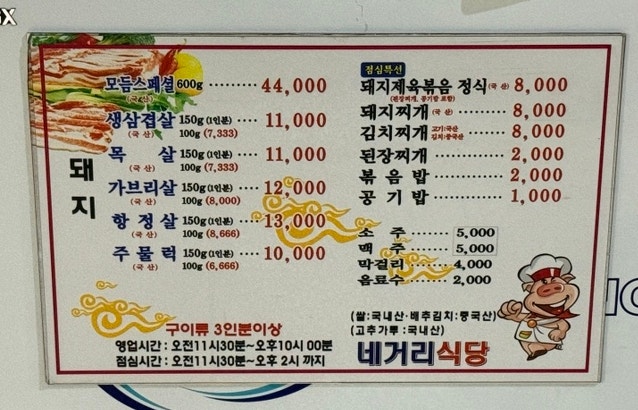 모듬스페셜 600g ········ 44,000
(국 산)
생삼겹살 150g(1인분)···· 11,000
(국 산) 100g (7,333)
목 살 150g(1인분)···· 11,000
(국 산) 100g (7,333)
가브리살 150g(1인분)···· 12,000
(국 산) 100g (8,000)
항정살 150g(1인분)···· 13,000
(국 산) 100g (8,666)
주물럭 150g(1인분)···· 10,000
(국 산) 100g (6,666)
돼지
구이류 3인분이상
영업시간 : 오전11시30분~오후10시 00분
점심시간 : 오전11시30분~오후 2시 까지
점심특선
돼지제육볶음 정식(국 산) 8,000
(된장찌개, 공기밥 포함)
돼지찌개(국 산) ········ 8,000
김치찌개 고기:국산 김치:중국산 ········ 8,000
된장찌개 ············ 2,000
볶음밥 ············ 2,000
공기밥 ············ 1,000
소 주 ········ 5,000
맥 주 ········ 5,000
막걸리 ········ 4,000
음료수 ········ 2,000
(쌀:국내산·배추김치:중국산)
(고추가루 : 국내산)
네거리식당